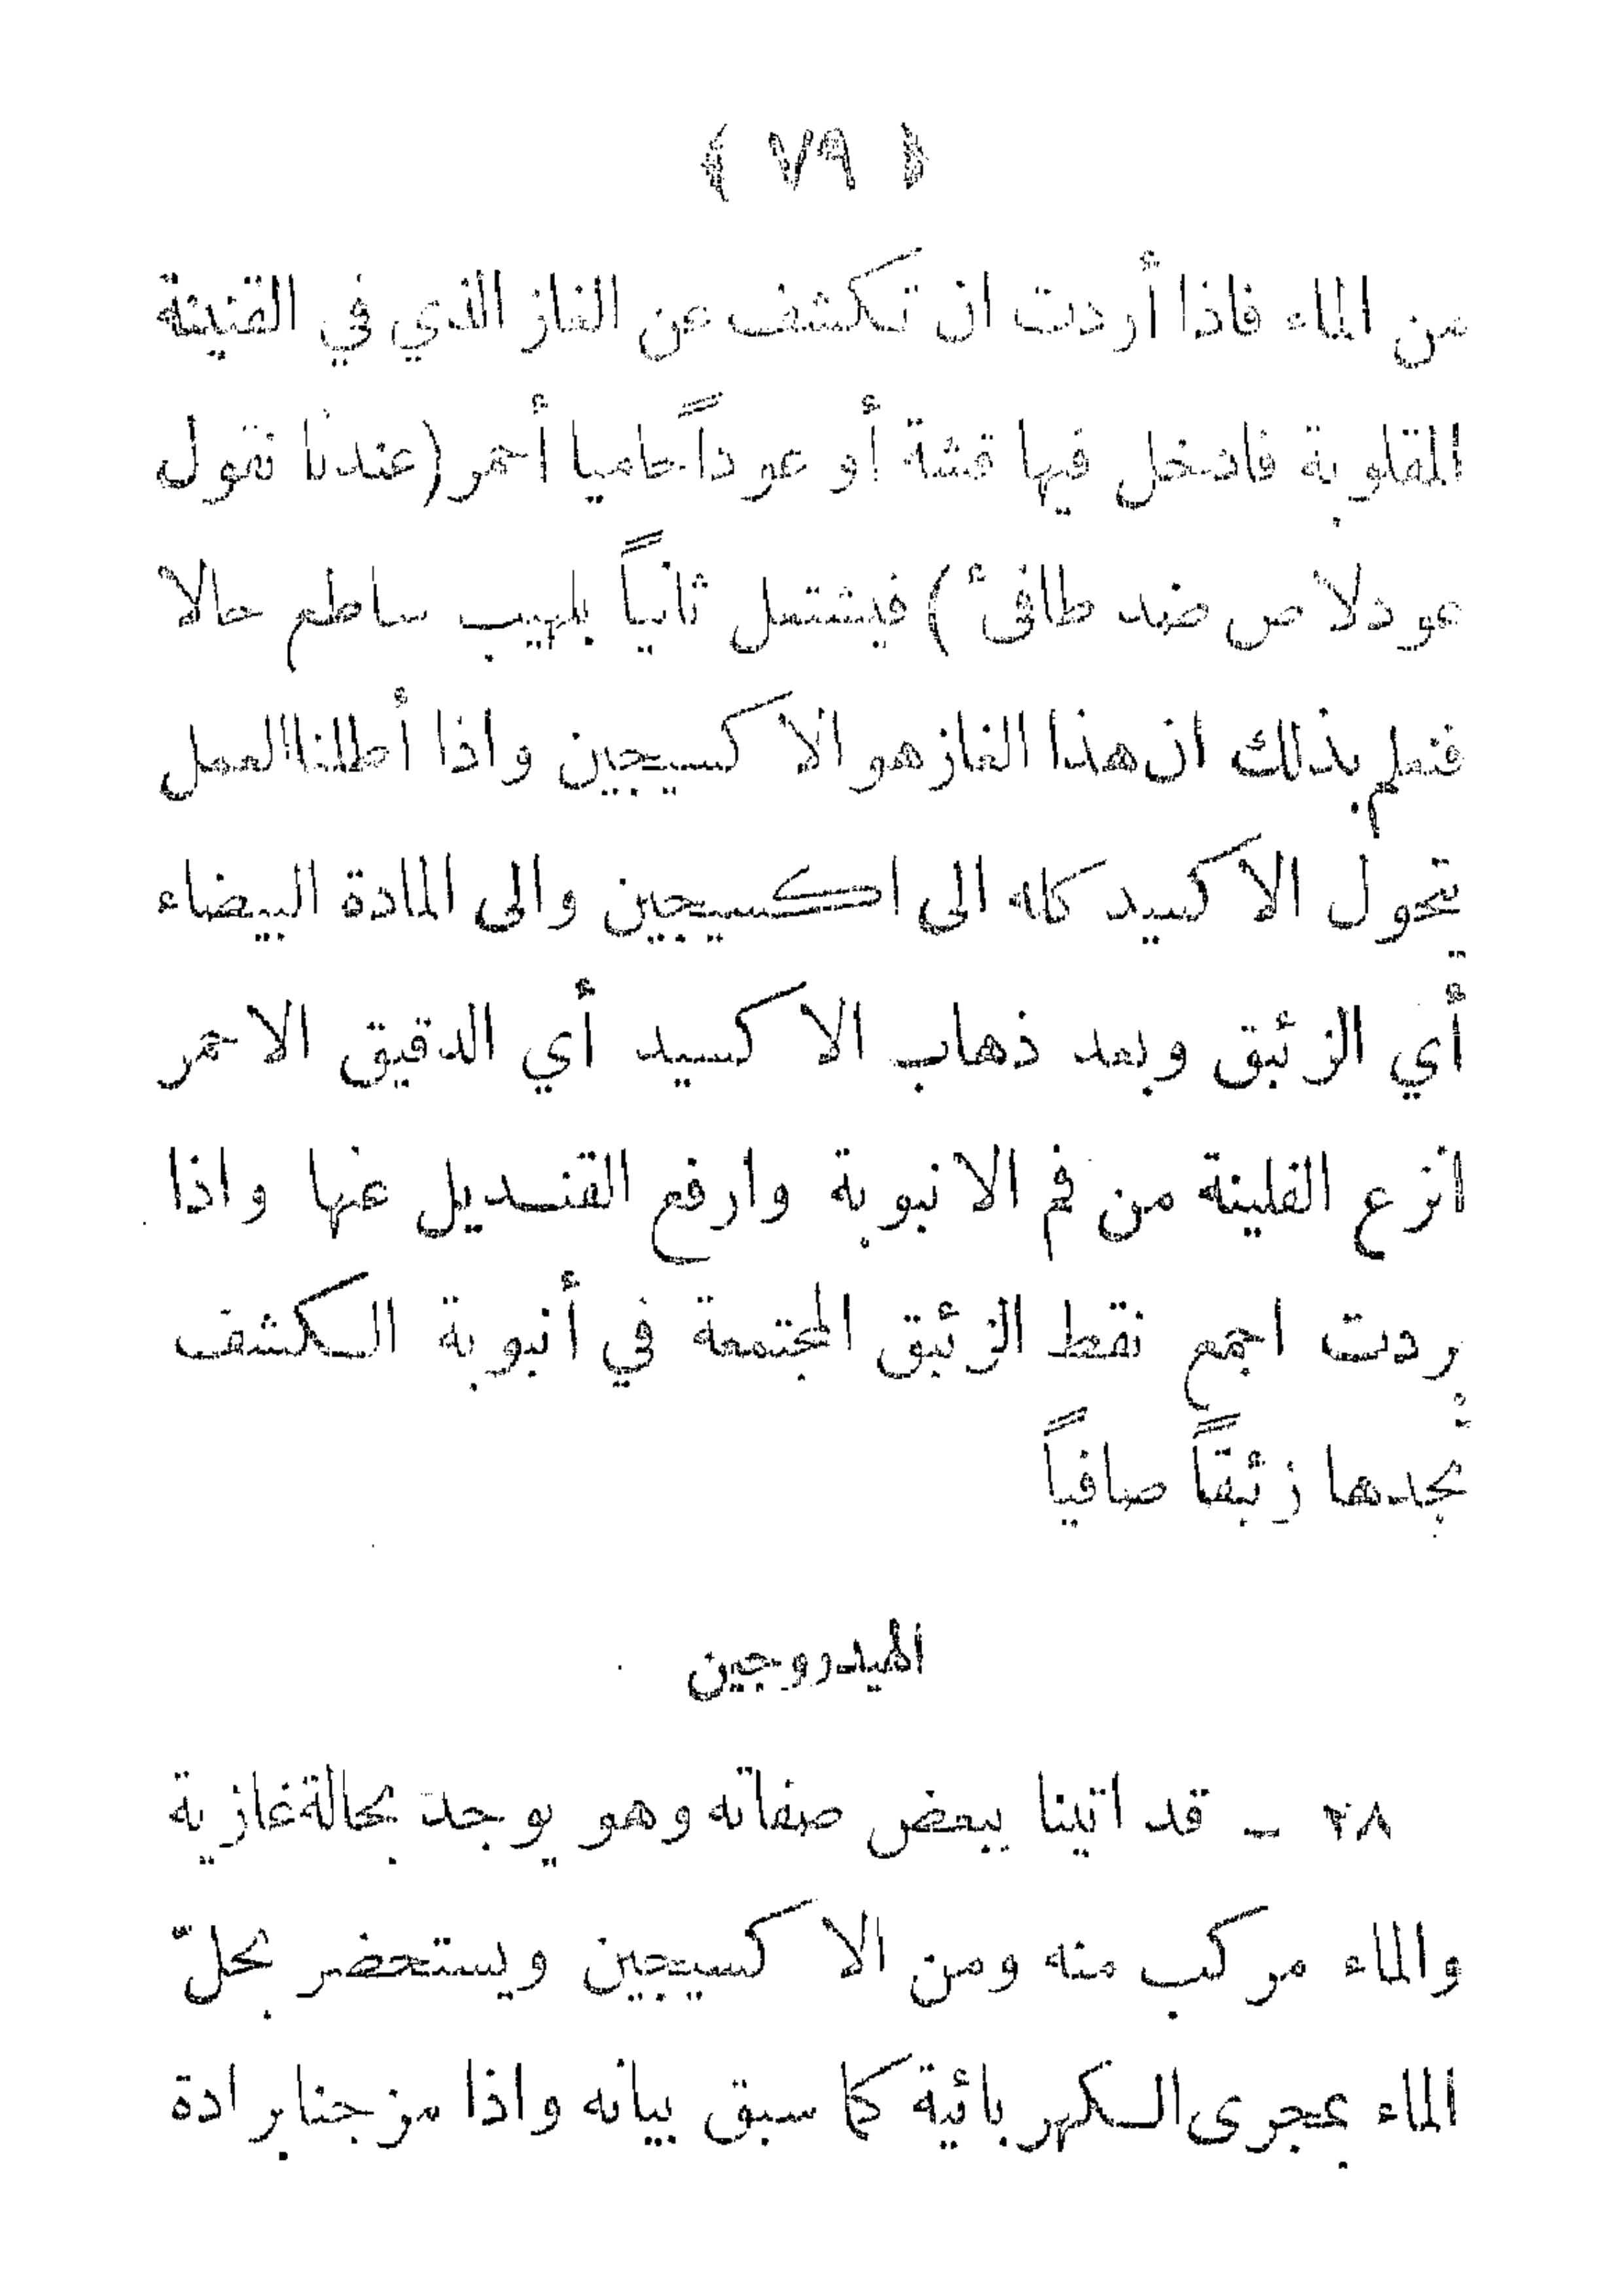 ﴿ ٧٩ ﴾
من الماء فاذا أردت ان تكشف عن الغاز الذي في القنينة
المقلوبة فادخل فيها قشة أو عوداً حاميا أحمر (عندنا نقول
عود لاص ضد طافئ) فيشتعل ثانياً بلهيب ساطع حالا
فتعلم بذلك ان هذا الغاز هو الاكسيجين واذا أطلنا العمل
تحول الاكسيد كله الى اكسيجين والى المادة البيضاء
أي الزئبق وبعد ذهاب الاكسيد أي الدقيق الاحمر
انزع الفلينة من فم الانبوبة وارفع القنديل عنها واذا
ردت اجمع نقط الزئبق المجتمعة في أنبوبة الكشف
تجدها زئبقاً صافياً
الهيدروجين
٢٨ ـ قد اتينا ببعض صفاته وهو يوجد بحالة غازية
والماء مركب منه ومن الاكسيجين ويستحضر بحلّ
الماء بمجرى الكهربائية كما سبق بيانه واذا مزجنا برادة